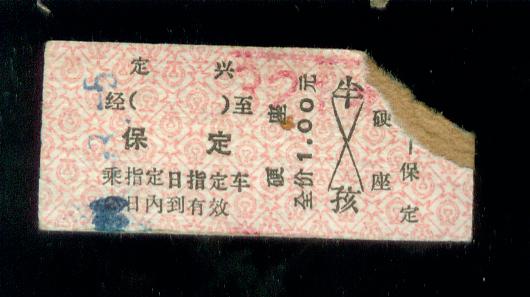 定 兴
经( )至
保 定
乘指定日指定车
日内到有效
硬座
全价1.00元
半
孩
硬座
—保定